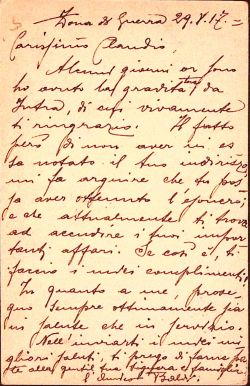 Zona di Guerra 29.V.17.=
Carissimo Claudio,
Alcuni giorni or sono
ho avuto la gradita tua da
Intra, di cui vivamente
ti ringrazio. Il fatto
però di non aver in es
sa notato il tuo indirizzo
mi fa arguire che tu pos
sa aver ottenuto l'esonero,
e che attualmente ti trova
ad accudire i tuoi impor
tanti affari. Se così è, ti
faccio i miei complimenti.
In quanto a me, prose
guo sempre ottimamente sia
in salute che in servizio.
Nell'inviarti i miei mi
gliori saluti, ti prego di farne par
te alla gentil tua Signora e famiglia